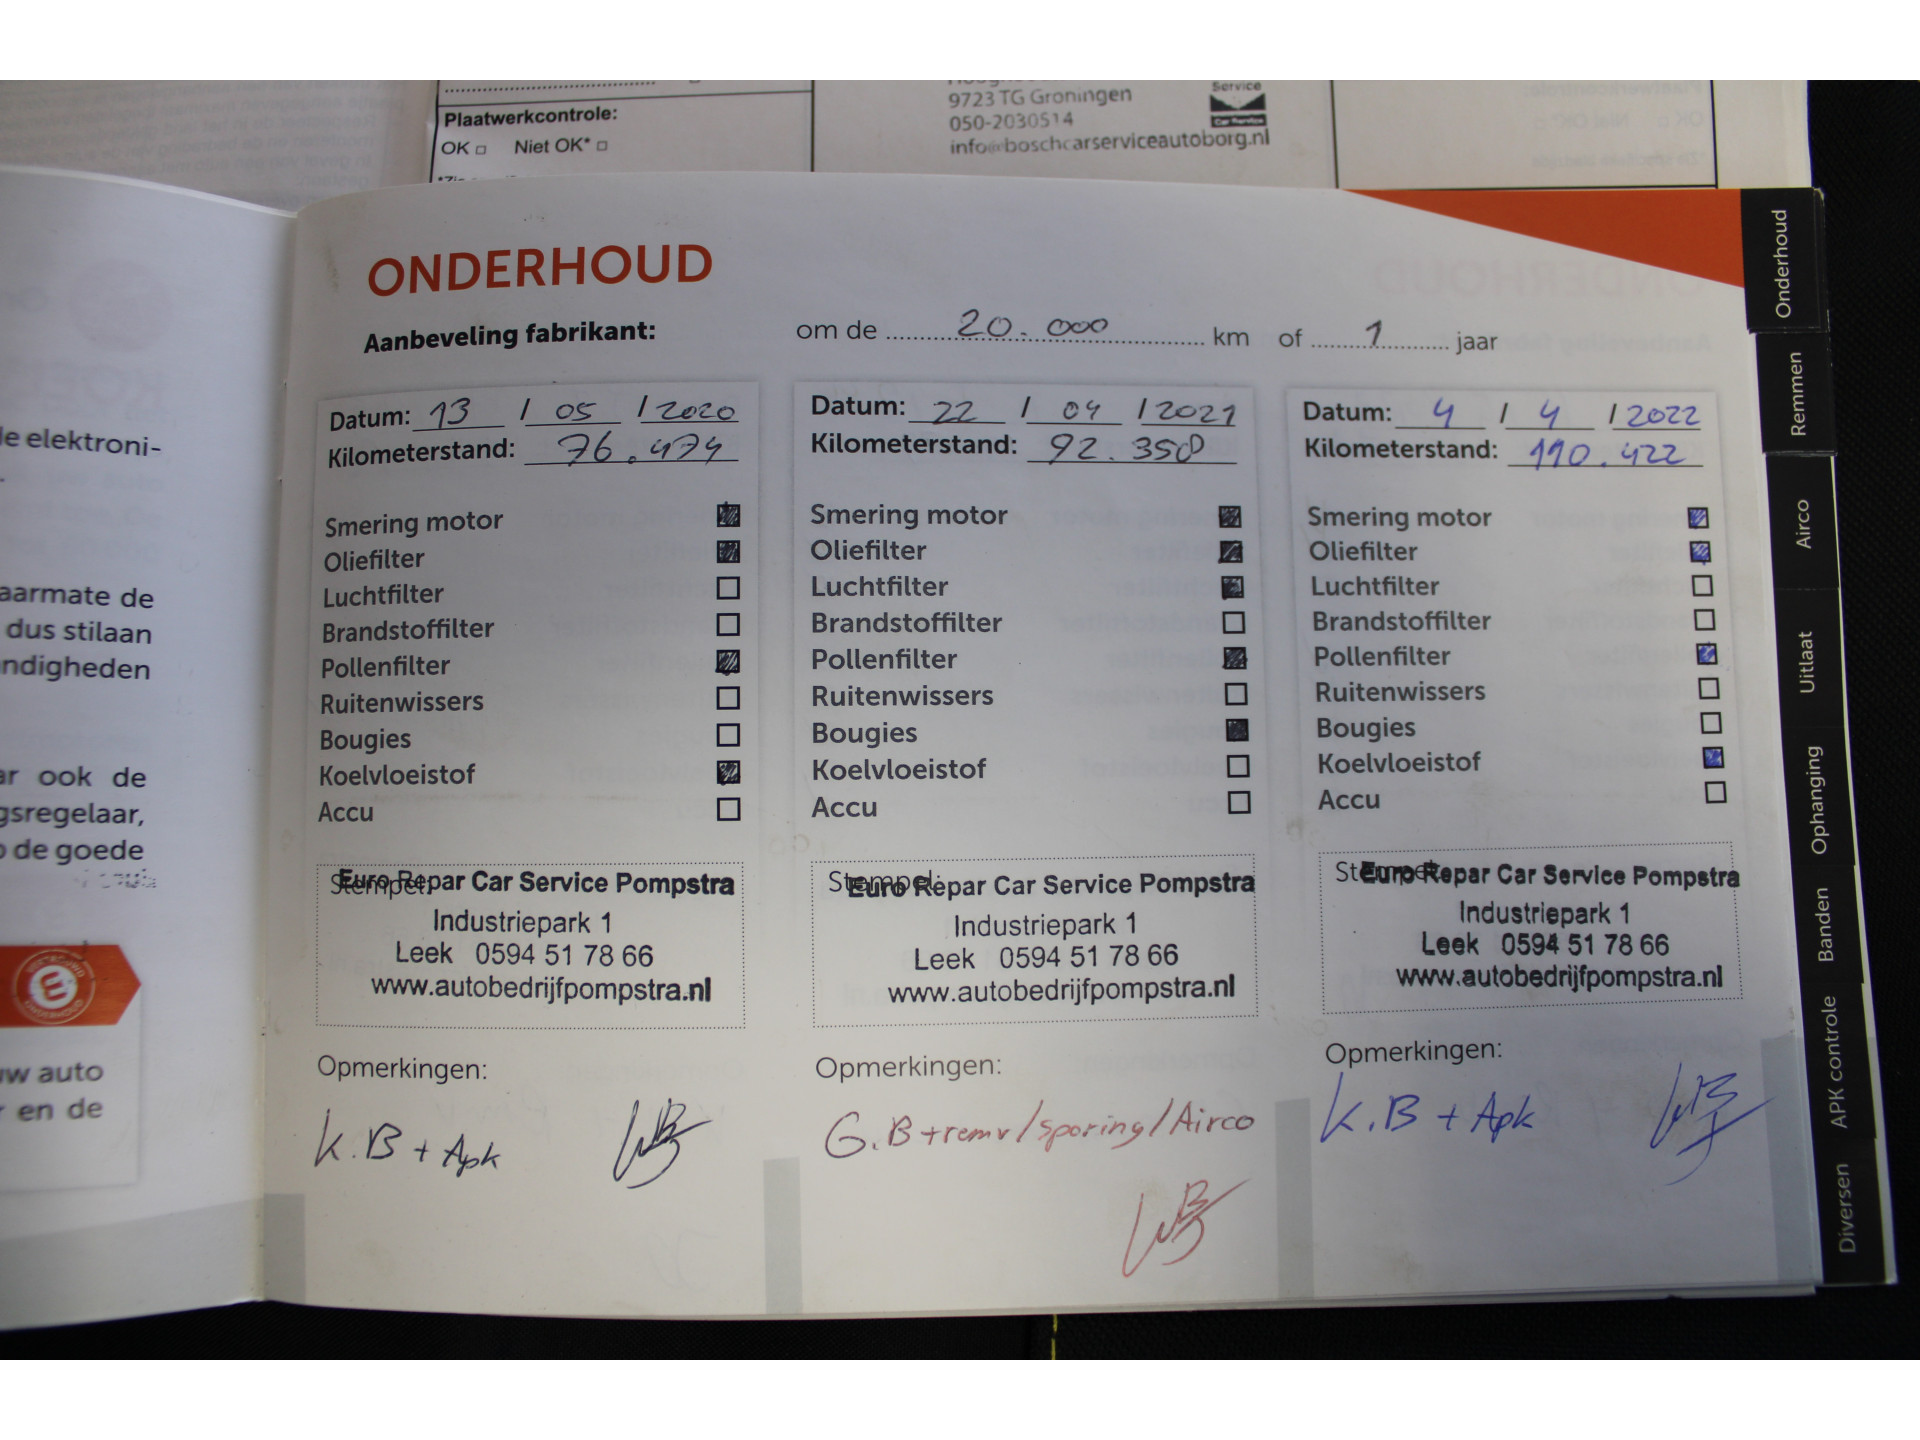 Plaatwerkcontrole:
OK Niet OK*
9723 TG Groningen
050-2030514
info@boschcarserviceautoborg.nl
Service
Car Service
de elektroni-
aarmate de
dus stilaan
ndigheden
ar ook de
gsregelaar,
o de goede
uw auto
r en de
ONDERHOUD
Aanbeveling fabrikant: om de 20.000 km of 1 jaar
Datum: 13 / 05 / 2020
Kilometerstand: 76.474
Smering motor
Oliefilter
Luchtfilter
Brandstoffilter
Pollenfilter
Ruitenwissers
Bougies
Koelvloeistof
Accu
Stempel:
Euro Repar Car Service Pompstra
Industriepark 1
Leek 0594 51 78 66
www.autobedrijfpompstra.nl
Opmerkingen:
K.B + Apk
Datum: 22 / 04 / 2021
Kilometerstand: 92.350
Smering motor
Oliefilter
Luchtfilter
Brandstoffilter
Pollenfilter
Ruitenwissers
Bougies
Koelvloeistof
Accu
Stempel:
Euro Repar Car Service Pompstra
Industriepark 1
Leek 0594 51 78 66
www.autobedrijfpompstra.nl
Opmerkingen:
G.B + remv/sporing/Airco
Datum: 4 / 4 / 2022
Kilometerstand: 110.422
Smering motor
Oliefilter
Luchtfilter
Brandstoffilter
Pollenfilter
Ruitenwissers
Bougies
Koelvloeistof
Accu
Stempel:
Euro Repar Car Service Pompstra
Industriepark 1
Leek 0594 51 78 66
www.autobedrijfpompstra.nl
Opmerkingen:
K.B + Apk
Onderhoud
Remmen
Airco
Uitlaat
Ophanging
Banden
APK controle
Diversen